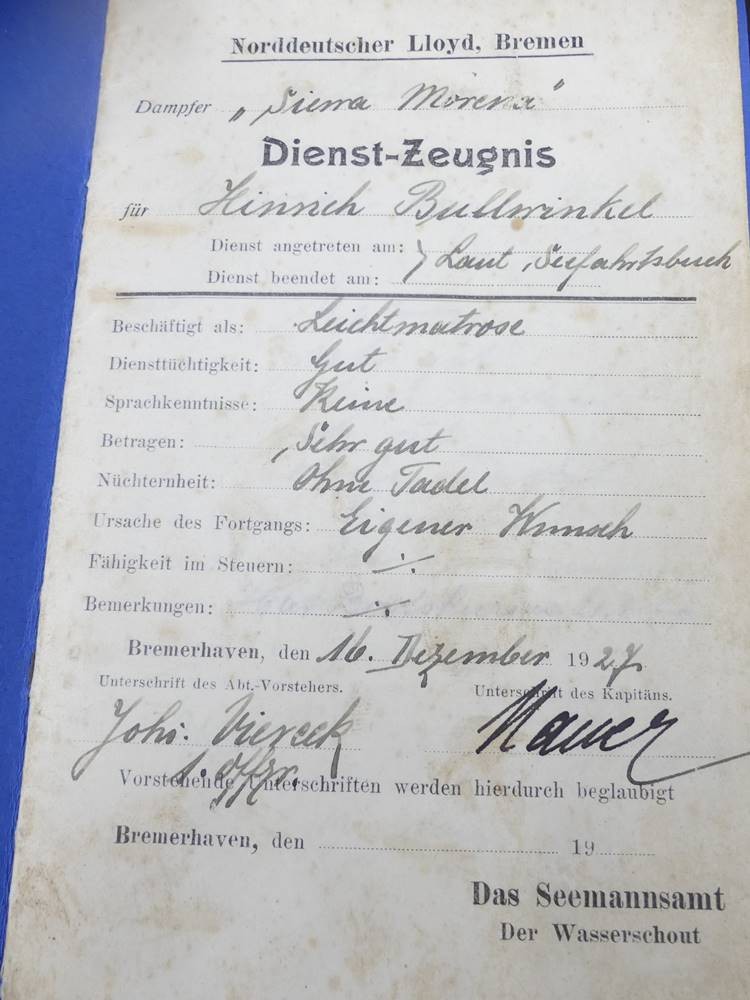 Norddeutscher Lloyd, Bremen
Dampfer „Sierra Morena"
Dienst-Zeugnis
für Hinrich Bullwinkel
Dienst angetreten am: } Laut Seefahrtsbuch
Dienst beendet am:
Beschäftigt als: Leichtmatrose
Diensttüchtigkeit: Gut
Sprachkenntnisse: Keine
Betragen: Sehr gut
Nüchternheit: Ohne Tadel
Ursache des Fortgangs: Eigener Wunsch
Fähigkeit im Steuern: ./.
Bemerkungen: ./.
Bremerhaven, den 16. Dezember 1927.
Unterschrift des Abt.-Vorstehers. Unterschrift des Kapitäns.
Johs. Viereck
1. Offzr.
Vorstehende Unterschriften werden hierdurch beglaubigt
Bremerhaven, den 19
Das Seemannsamt
Der Wasserschout